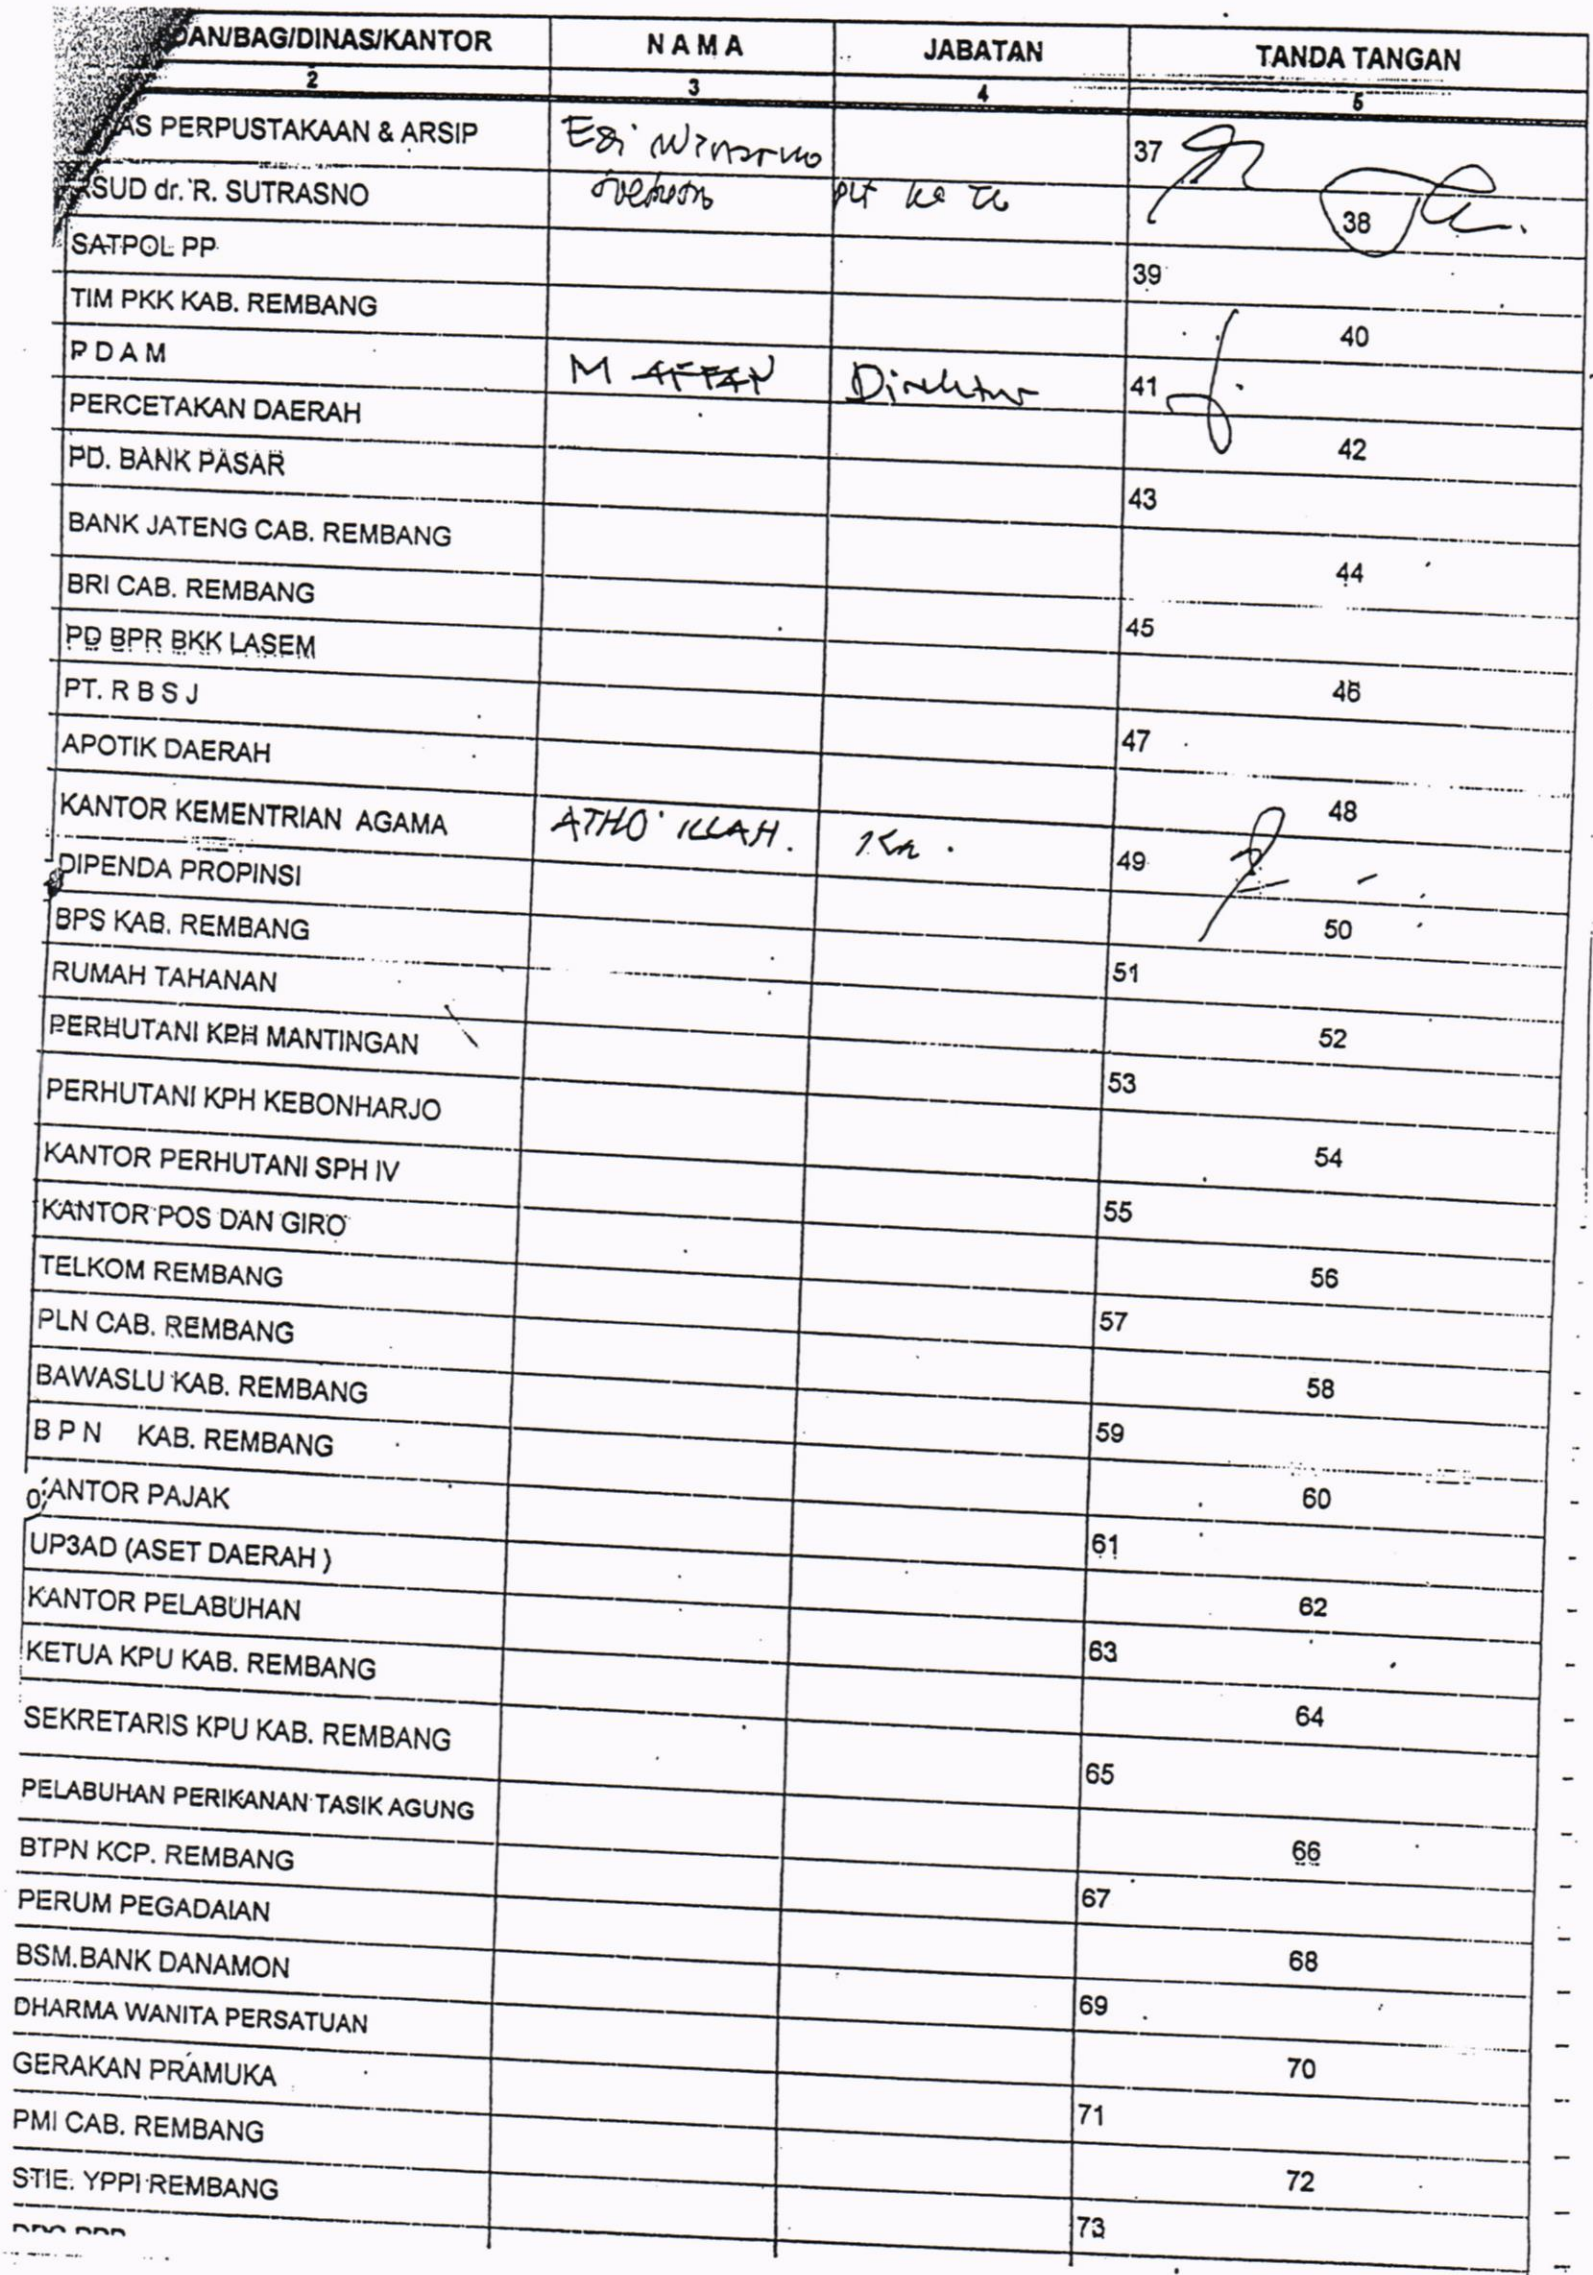 DAN/BAG/DINAS/KANTOR NAMA JABATAN TANDA TANGAN
2 3 4 5
AS PERPUSTAKAAN & ARSIP Edi Winarno 37
RSUD dr. R. SUTRASNO plt 38
SATPOL PP 39
TIM PKK KAB. REMBANG 40
P D A M M AFFAN Direktur 41
PERCETAKAN DAERAH 42
PD. BANK PASAR 43
BANK JATENG CAB. REMBANG 44
BRI CAB. REMBANG 45
PD BPR BKK LASEM 46
PT. R B S J 47
APOTIK DAERAH 48
KANTOR KEMENTRIAN AGAMA ATHO' ILLAH. Ka. 49
DIPENDA PROPINSI 50
BPS KAB. REMBANG 51
RUMAH TAHANAN 52
PERHUTANI KPH MANTINGAN 53
PERHUTANI KPH KEBONHARJO 54
KANTOR PERHUTANI SPH IV 55
KANTOR POS DAN GIRO 56
TELKOM REMBANG 57
PLN CAB. REMBANG 58
BAWASLU KAB. REMBANG 59
B P N KAB. REMBANG 60
KANTOR PAJAK 61
UP3AD (ASET DAERAH ) 62
KANTOR PELABUHAN 63
KETUA KPU KAB. REMBANG 64
SEKRETARIS KPU KAB. REMBANG 65
PELABUHAN PERIKANAN TASIK AGUNG 66
BTPN KCP. REMBANG 67
PERUM PEGADAIAN 68
BSM.BANK DANAMON 69
DHARMA WANITA PERSATUAN 70
GERAKAN PRAMUKA 71
PMI CAB. REMBANG 72
STIE. YPPI REMBANG 73